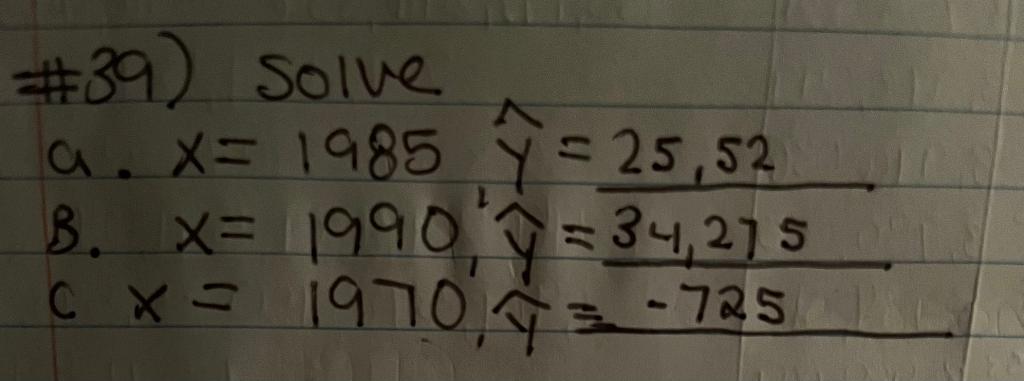 #39) Solve
a. x = 1985, ŷ = 25,52
B. x = 1990, ŷ = 34,275
C x = 1970, ŷ = -725